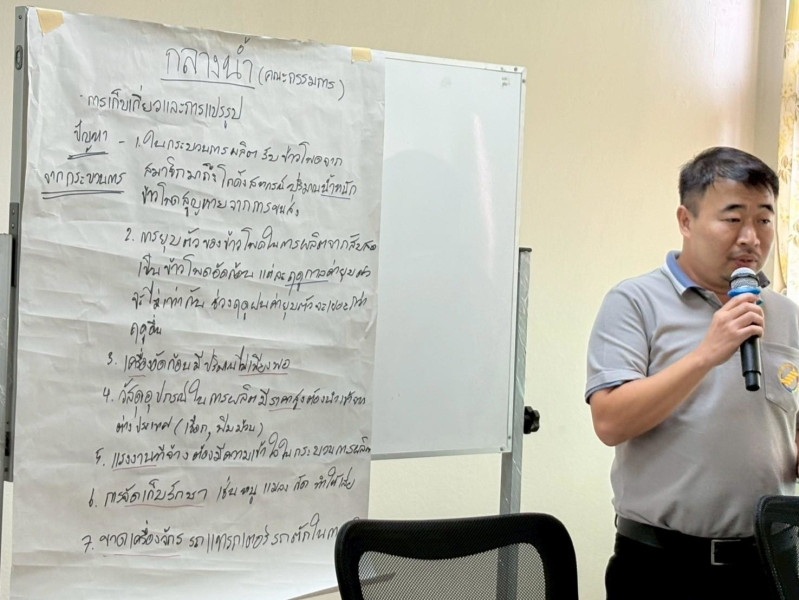 กลางน้ำ (คณะกรรมการ)
- การเก็บเกี่ยวและการแปรรูป
ปัญหา - 1. ในกระบวนการผลิต รับข้าวโพดจาก
จากกระบวนการ สมาชิกมาถึงโกดังสหกรณ์ ปริมาณน้ำหนัก
ข้าวโพดสูญหายจากการขนส่ง
2. การยุบตัวของข้าวโพดในการผลิตจากสับสด
เป็นข้าวโพดอัดก้อน แต่ละฤดูกาลค่ายุบตัว
จะไม่เท่ากัน ช่วงฤดูฝนค่ายุบตัวจะเยอะกว่า
ฤดูอื่น
3. เครื่องอัดก้อนมีปริมาณไม่เพียงพอ
4. วัสดุอุปกรณ์ในการผลิตมีราคาสูงต้องนำเข้าจาก
ต่างประเทศ (เชือก, ฟิมม้วน)
5. แรงงานที่จ้างต้องมีความเข้าใจในกระบวนการผลิต
6. การจัดเก็บรักษา เช่น หนู แมลง กัด ทำให้เสีย
7. ขาดเครื่องจักร รถแทรกเตอร์ รถตักในการ